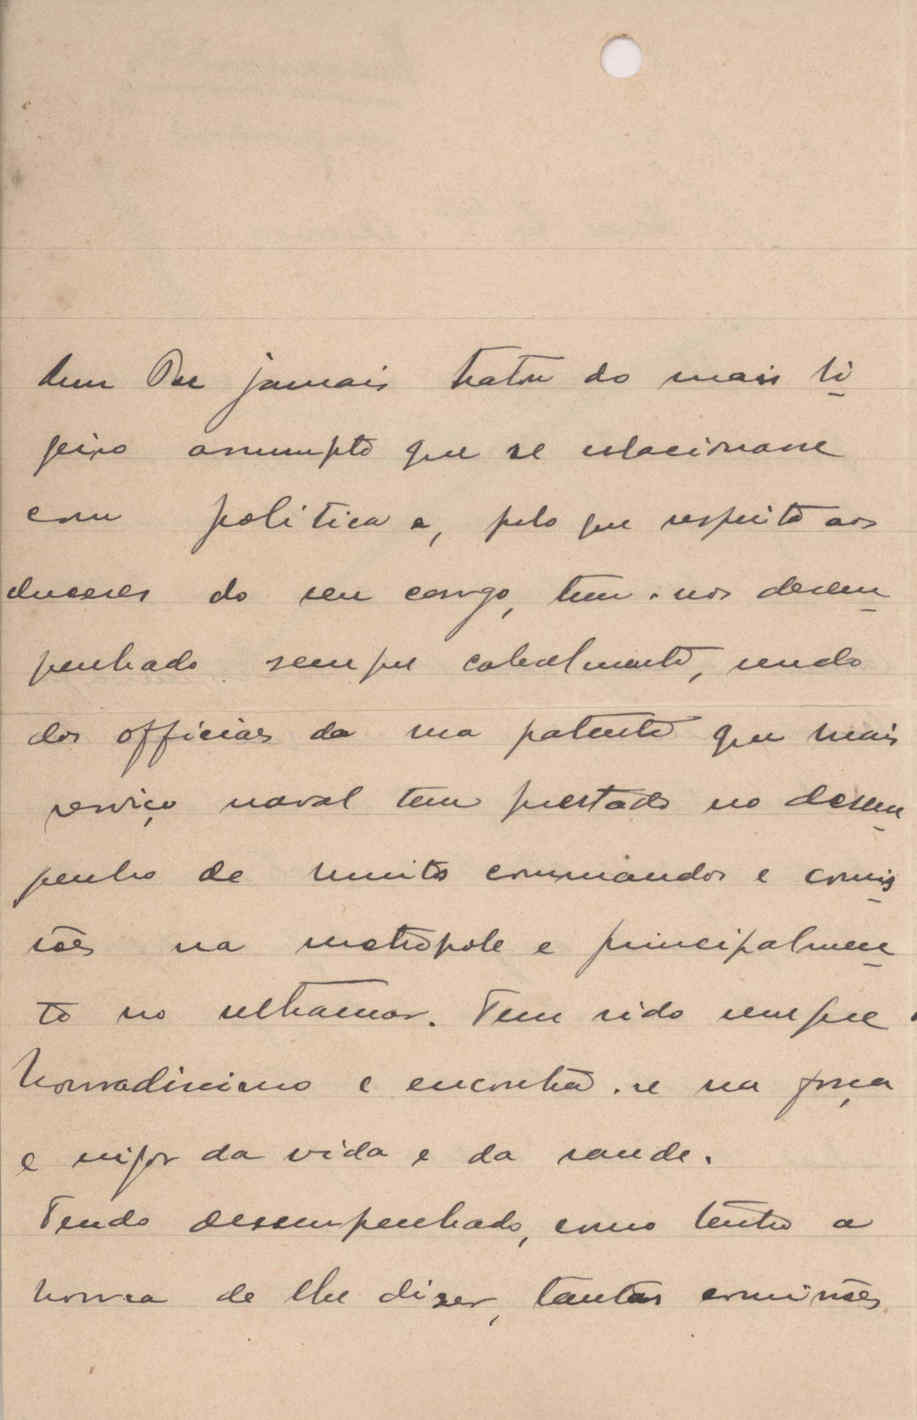 jamais tratou do mais li
geiro assumpto que se relacionasse
com politica e, pelo que respeita aos
deveres do seu cargo, tem-nos desem
penhado sempre cabalmente, sendo
dos officiaes da sua patente que mais
serviço naval tem prestado no desem
penho de muitos commandos e comis
sões na metropole e principalmen
te no ultramar. Tem sido sempre
honradissimo e encontra-se na força
e vigor da vida e da saude.
Tendo desempenhado, como tenho a
honra de lhe dizer, tantas comissões